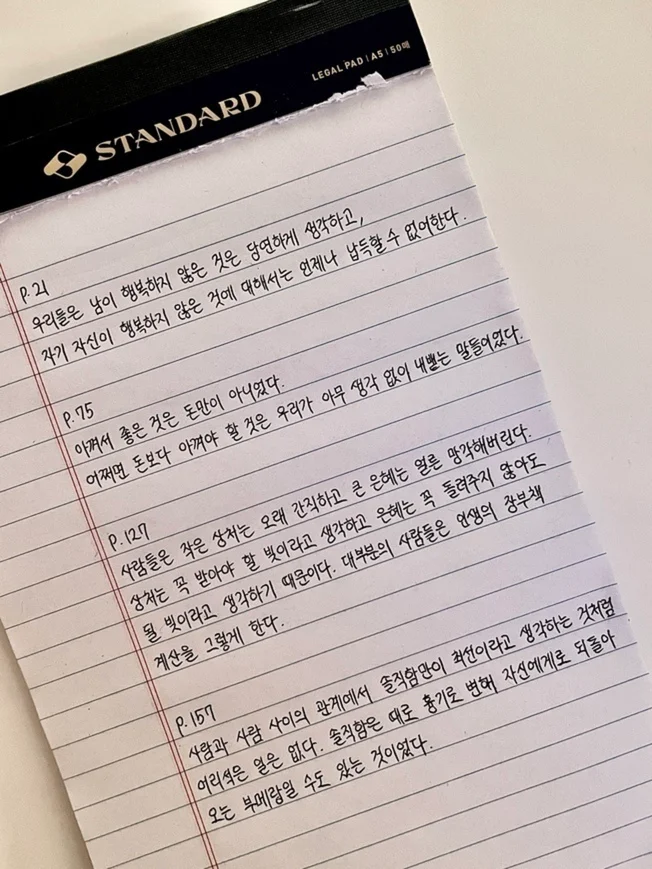 LEGAL PAD | A5 | 50매
STANDARD
p.21
우리들은 남이 행복하지 않은 것은 당연하게 생각하고,
자기 자신이 행복하지 않은 것에 대해서는 언제나 납득할 수 없어한다.
p.75
아껴서 좋은 것은 돈만이 아니었다.
어쩌면 돈보다 아껴야 할 것은 우리가 아무 생각 없이 내뱉는 말들이었다.
p.127
사람들은 작은 상처는 오래 간직하고 큰 은혜는 얼른 망각해버린다.
상처는 꼭 받아야 할 빚이라고 생각하고 은혜는 꼭 돌려주지 않아도
될 빚이라고 생각하기 때문이다. 대부분의 사람들은 인생의 장부책
계산을 그렇게 한다.
p.157
사람과 사람 사이의 관계에서 솔직함만이 최선이라고 생각하는 것처럼
어리석은 일은 없다. 솔직함은 때로 흉기로 변해 자신에게로 되돌아
오는 부메랑일 수도 있는 것이었다.